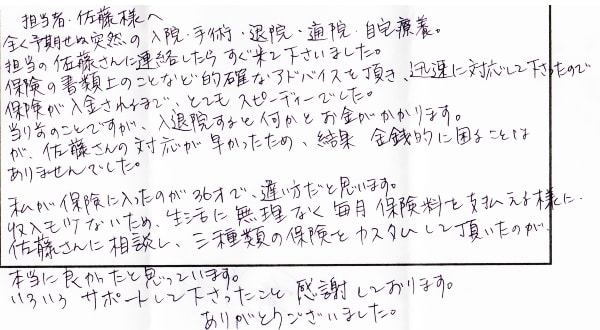 担当者・佐藤様へ
全く予期せぬ突然の入院・手術・退院・通院・自宅療養。
担当の佐藤さんに連絡したらすぐ来て下さいました。
保険の書類上のことなど的確なアドバイスを頂き、迅速に対応して下さったので
保険が入金されるまで、とてもスピーディーでした。
当り前のことですが、入退院すると何かとお金がかかります。
が、佐藤さんの対応が早かったため、結果 金銭的に困ることは
ありませんでした。
私が保険に入ったのが36才で、遅い方だと思います。
収入も少ないため、生活に無理なく毎月保険料を支払える様に
佐藤さんに相談し、三種類の保険をカスタムして頂いたのが、
本当に良かったと思っています。
いろいろサポートして下さったこと 感謝しております。
ありがとうございました。